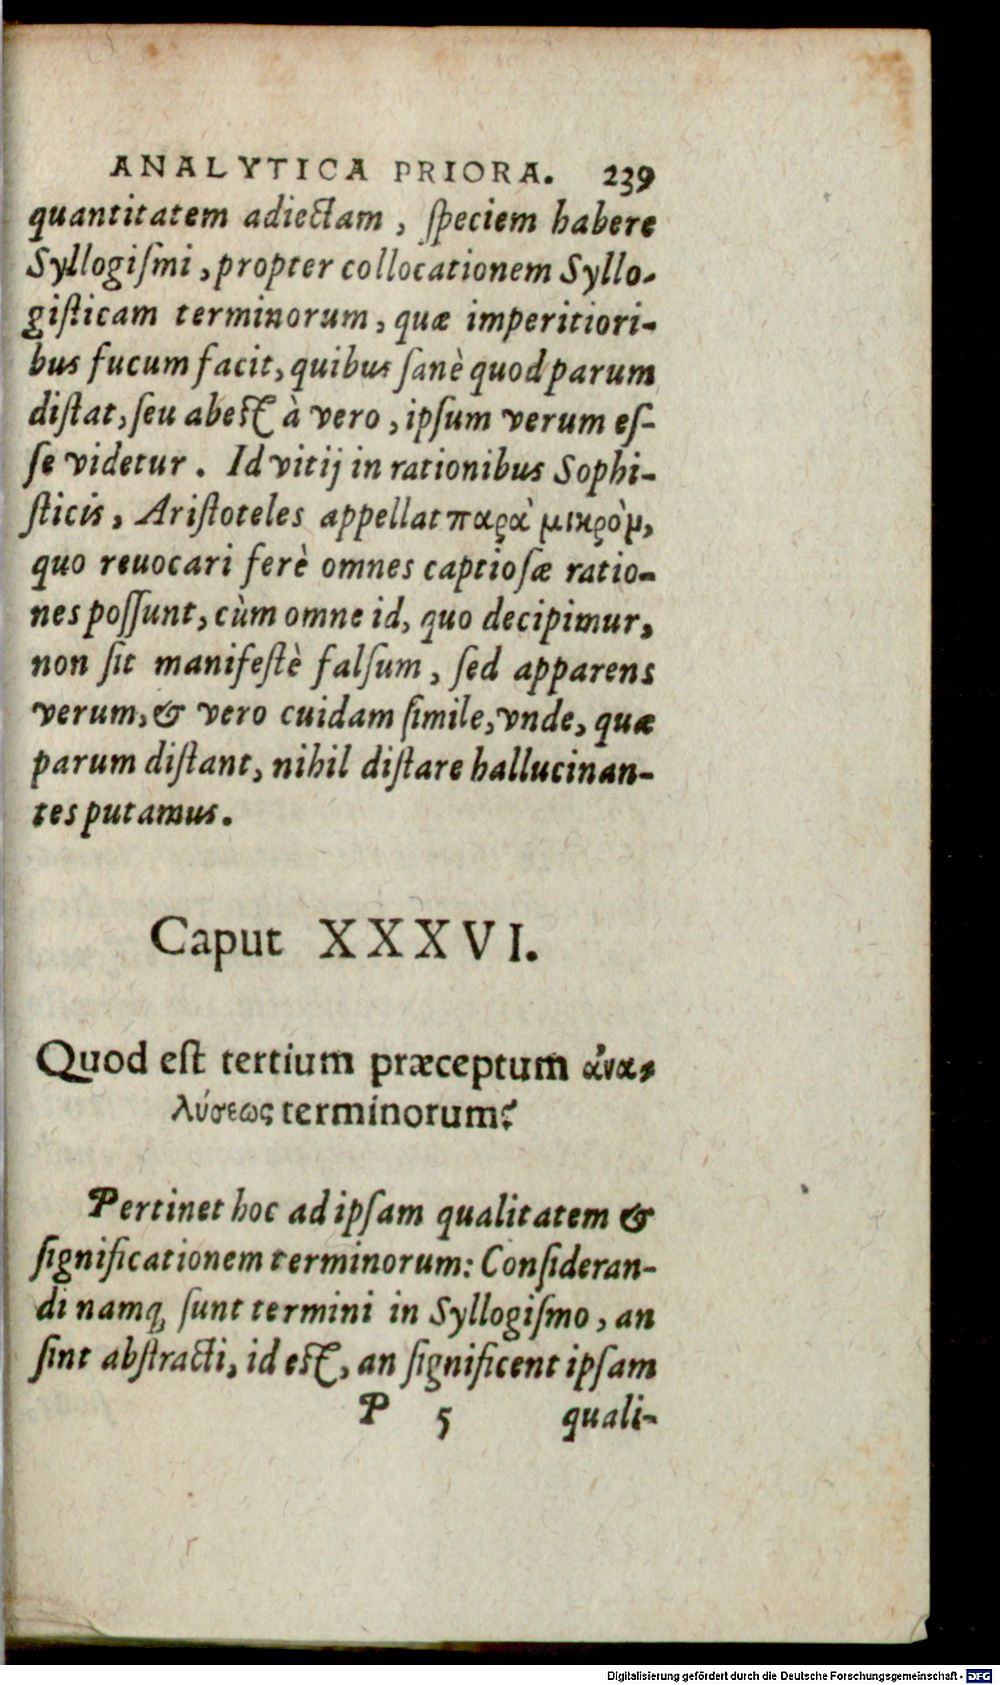 ANALYTICA PRIORA. 239
quantitatem adiectam, ſpeciem habere
Syllogiſmi, propter collocationem Syllo-
giſticam terminorum, quæ imperitiori-
bus fucum facit, quibus ſanè quod parum
diſtat, ſeu abeſt à vero, ipſum verum eſ-
ſe videtur. Id vitij in rationibus Sophi-
ſticis, Ariſtoteles appellat παρὰ μικρὸμ,
quo reuocari ferè omnes captioſæ ratio-
nes poſſunt, cùm omne id, quo decipimur,
non ſit manifeſtè falſum, ſed apparens
verum, & vero cuidam ſimile, vnde, quæ
parum diſtant, nihil diſtare hallucinan-
tes putamus.
Caput XXXVI.
Quod eſt tertium præceptum ἀνα-
λύσεως terminorum?
Pertinet hoc ad ipſam qualitatem &
ſignificationem terminorum: Conſideran-
di namq́; ſunt termini in Syllogiſmo, an
ſint abſtracti, id eſt, an ſignificent ipſam
P 5 quali-
Digitalisierung gefördert durch die Deutsche Forschungsgemeinschaft - DFG